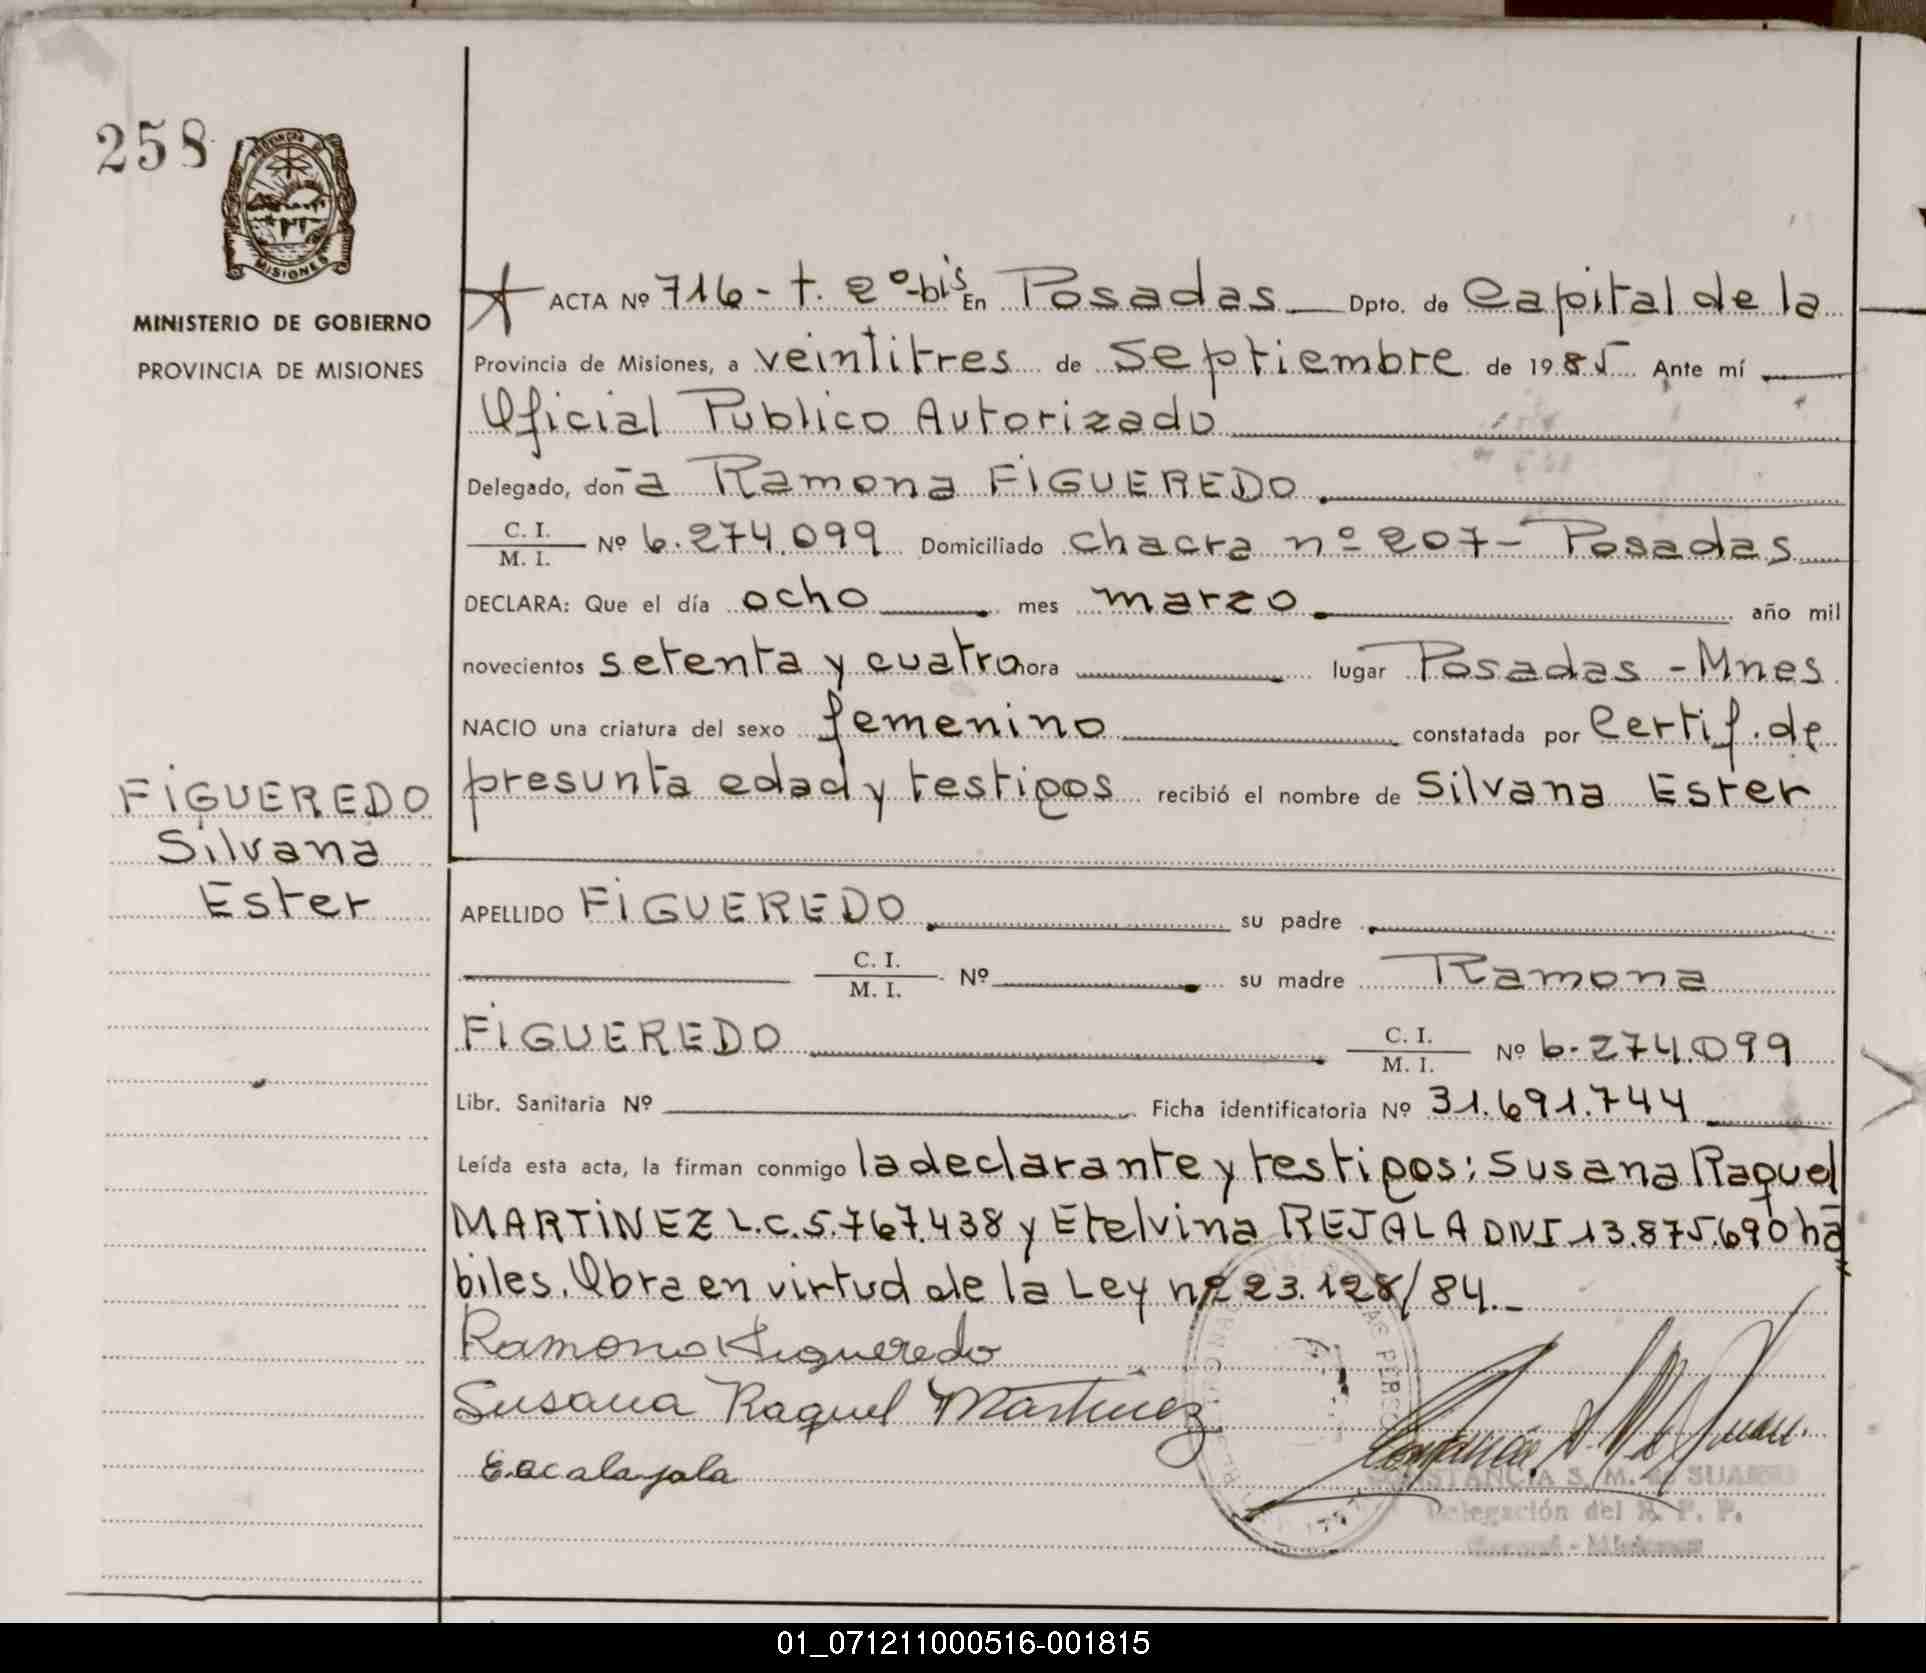 258
PROVINCIA DE
MISIONES
MINISTERIO DE GOBIERNO
PROVINCIA DE MISIONES
ACTA Nº 716 - t. 2º-bis En Posadas Dpto. de Capital de la
Provincia de Misiones, a veintitres de Septiembre de 1985 Ante mí
Oficial Publico Autorizado
Delegado, doña Ramona FIGUEREDO
C. I.
M. I. Nº 6.274.099 Domiciliado chacra nº 207 - Posadas
DECLARA: Que el día ocho mes marzo año mil
novecientos setenta y cuatro hora lugar Posadas - Mnes
NACIO una criatura del sexo femenino constatada por Certif. de
presunta edad y testigos recibió el nombre de Silvana Ester
FIGUEREDO
Silvana
Ester
APELLIDO FIGUEREDO su padre
C. I.
M. I. Nº su madre Ramona
FIGUEREDO C. I.
M. I. Nº 6.274.099
Libr. Sanitaria Nº Ficha identificatoria Nº 31.691.744
Leída esta acta, la firman conmigo la declarante y testigos: Susana Raquel
MARTINEZ L.C. 5.767.438 y Etelvina REJALA DNI 13.875.690 há
biles. Obra en virtud de la Ley nº 23.128/84.-
Ramona Figueredo
Susana Raquel Martinez
CONSTANCIA S. M. de SUAREZ
Delegación del R. P. P.
01_071211000516-001815